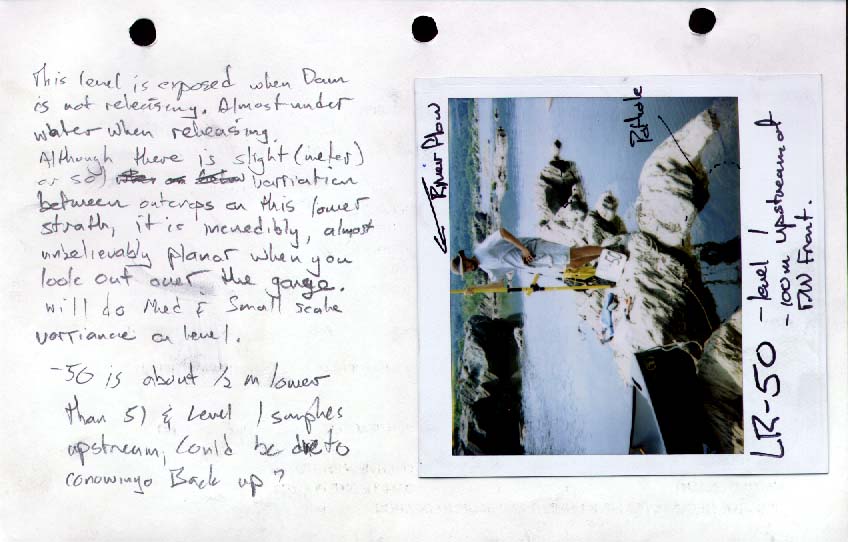 This level is exposed when Dam
is not releasing. Almost under
water when releasing.
Although there is slight (meter)
or so) varriation
between outcrops on this lower
strath, it is incredibly, almost
unbelievably planar when you
look out over the gorge.
will do Med & Small scale
varriance on level.
-50 is about ½ m lower
than 51 & Level 1 samples
upstream, Could be due to
conowingo Back up?
River Flow
Pothole
LR-50 - level 1
- 100m upstream of
Front.